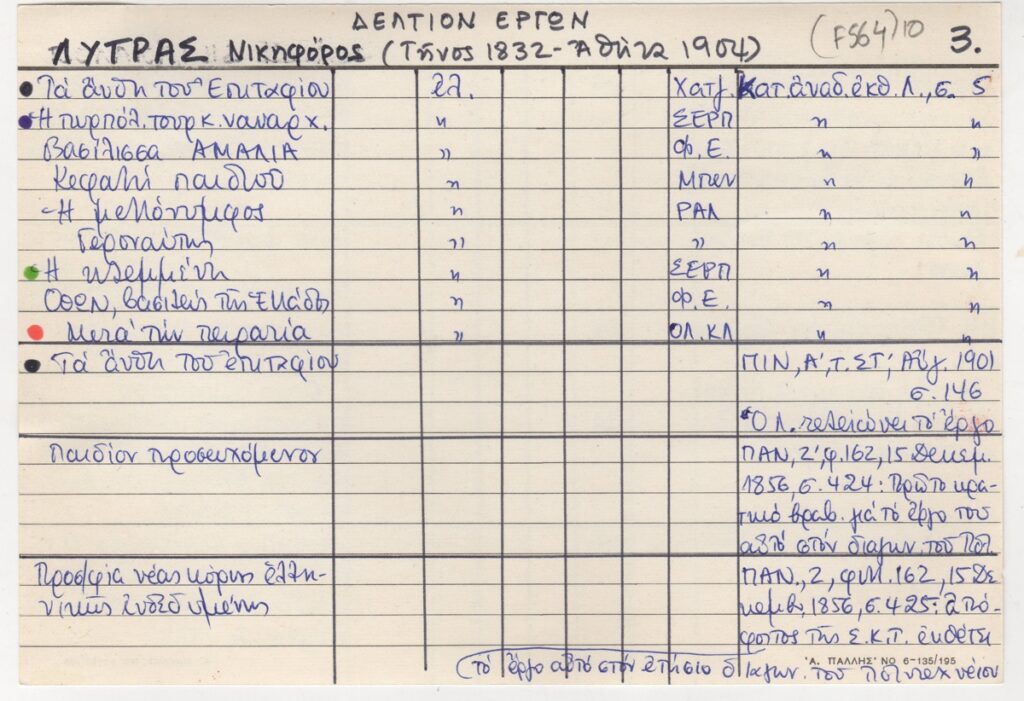 ΔΕΛΤΙΟΝ ΕΡΓΩΝ
ΛΥΤΡΑΣ Νικηφόρος (Τῆνος 1832-Ἀθήνα 1904) (F564)10 3.
Τά ἄνθη τοῦ Ἐπιταφίου ἐλ. Χατζ. Κατ. ἀναδ. ἐκθ. Λ., σ. 5
Ἡ πυρπόλ. τουρκ. ναυαρχ. " ΣΕΡΠ " "
Βασίλισσα ΑΜΑΛΙΑ " Φ.Ε. " "
Κεφαλή παιδιοῦ " Μπεν " "
-Ἡ μελλόνυμφος " ΡΑΛ " "
Γεροναύτης " " " "
Ἡ κλεμμένη " ΣΕΡΠ " "
Οθων, βασιλεύς τῆς Ἑλλάδος " Φ.Ε. " "
Μετά τήν πειρατία " ΟΛ.ΚΛ " "
Τά ἄνθη τοῦ ἐπιταφίου ΠΙΝ, Α', Τ. ΣΤ', Αὔγ. 1901
σ. 146
Ὁ Λ. τελειώνει τό ἔργο
Παιδίον προσευχόμενον ΠΑΝ, Ζ', φ. 162, 15 Δεκεμ.
1856, σ. 424: Πρῶτο κρα-
τικό βραβ. γιά τό ἔργο του
αὐτό στόν διαγων. τοῦ Πολ.
Προσ/φία νέας κόρης ἑλλη-
νικῶς ἐνδεδυμένης
ΠΑΝ., Ζ, φυλ. 162, 15 Δε
κεμβ. 1856, σ. 425: ἀπό-
φοιτος τῆς Σ.Κ.Τ. ἐκθέτει
τό ἔργο αὐτό στόν ἐτήσιο διαγων. τοῦ Πολυτεχνείου
'Α. ΠΑΛΛΗΣ' ΝΟ 6-135/195